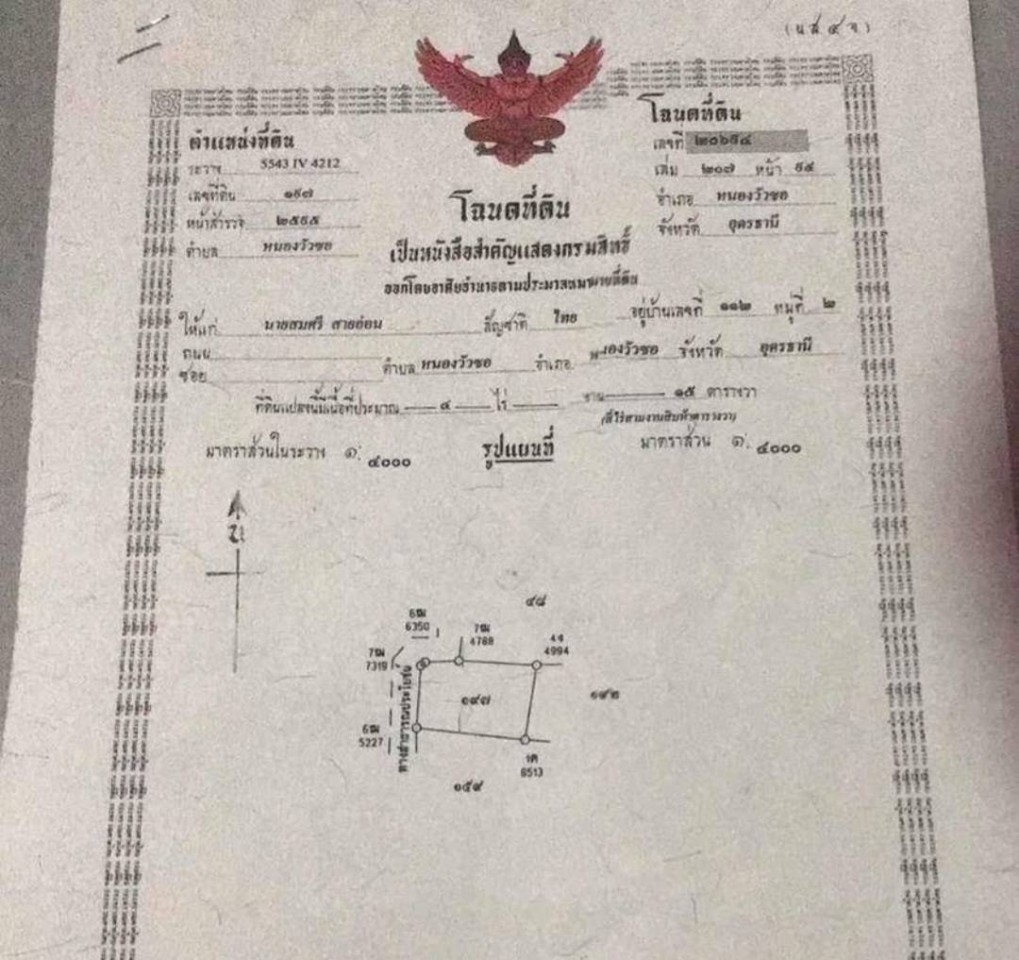 (น.ส.๔ จ)
ตำแหน่งที่ดิน
ระวาง 5543 IV 4212
เลขที่ดิน ๑๙๗
หน้าสำรวจ ๒๕๙๕
ตำบล หนองวัวซอ
โฉนดที่ดิน
เลขที่ ๒๐๖๙๔
เล่ม ๒๐๗ หน้า ๙๔
อำเภอ หนองวัวซอ
จังหวัด อุดรธานี
โฉนดที่ดิน
เป็นหนังสือสำคัญแสดงกรรมสิทธิ์
ออกโดยอาศัยอำนาจตามประมวลกฎหมายที่ดิน
ให้แก่ นายสมศรี สายอ่อน สัญชาติ ไทย อยู่บ้านเลขที่ ๑๑๒ หมู่ที่ ๒
ถนน
ซอย ตำบล หนองวัวซอ อำเภอ หนองวัวซอ จังหวัด อุดรธานี
ที่ดินแปลงนี้มีเนื้อที่ประมาณ ๔ ไร่ งาน ๑๕ ตารางวา
มาตราส่วนในระวาง ๑: ๔๐๐๐
รูปแผนที่
มาตราส่วน ๑: ๔๐๐๐
น
๔๘
6ฒ
6350
7ฒ
4788
4จ
4994
7ฒ
7319
ทางสาธารณประโยชน์
๑๙๗
๑๙๒
6ฒ
5227
1ค
8513
๑๕๙